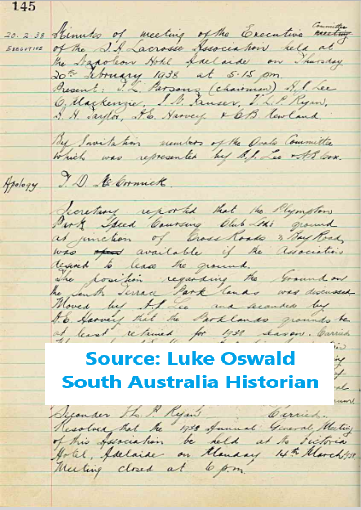 145
20.2.38 Minutes of meeting of the Executive Committee meeting
Executive of the S.A. Lacrosse Association held at
the Napoleon Hotel Adelaide on Thursday
20th February 1938 at 5.15 pm
Present: Parsons (chairman) Lee
C. Mackenzie, Ryan,
S. H. Taylor, Harvey & C B Rowland
By Invitation members of the Committee
which was represented by Lee &
Apology T. D. McCormick.
Secretary reported that the Plympton
Park Speed Coursing Club the ground
at junction of Cross Roads & Bay Road
was available if the Association
to lease the ground.
The position regarding the grounds on
the South Terrace Park lands was discussed
Moved by Lee and seconded by
Harvey that the Parklands grounds be
at least retained for 1938 season. Carried
Source: Luke Oswald
South Australia Historian
Seconder Ryan Carried.
Resolved that the 1938 Annual General Meeting
of this Association be held at the Victoria
Hotel, Adelaide on Monday 14th March 1938
Meeting closed at 6 pm.